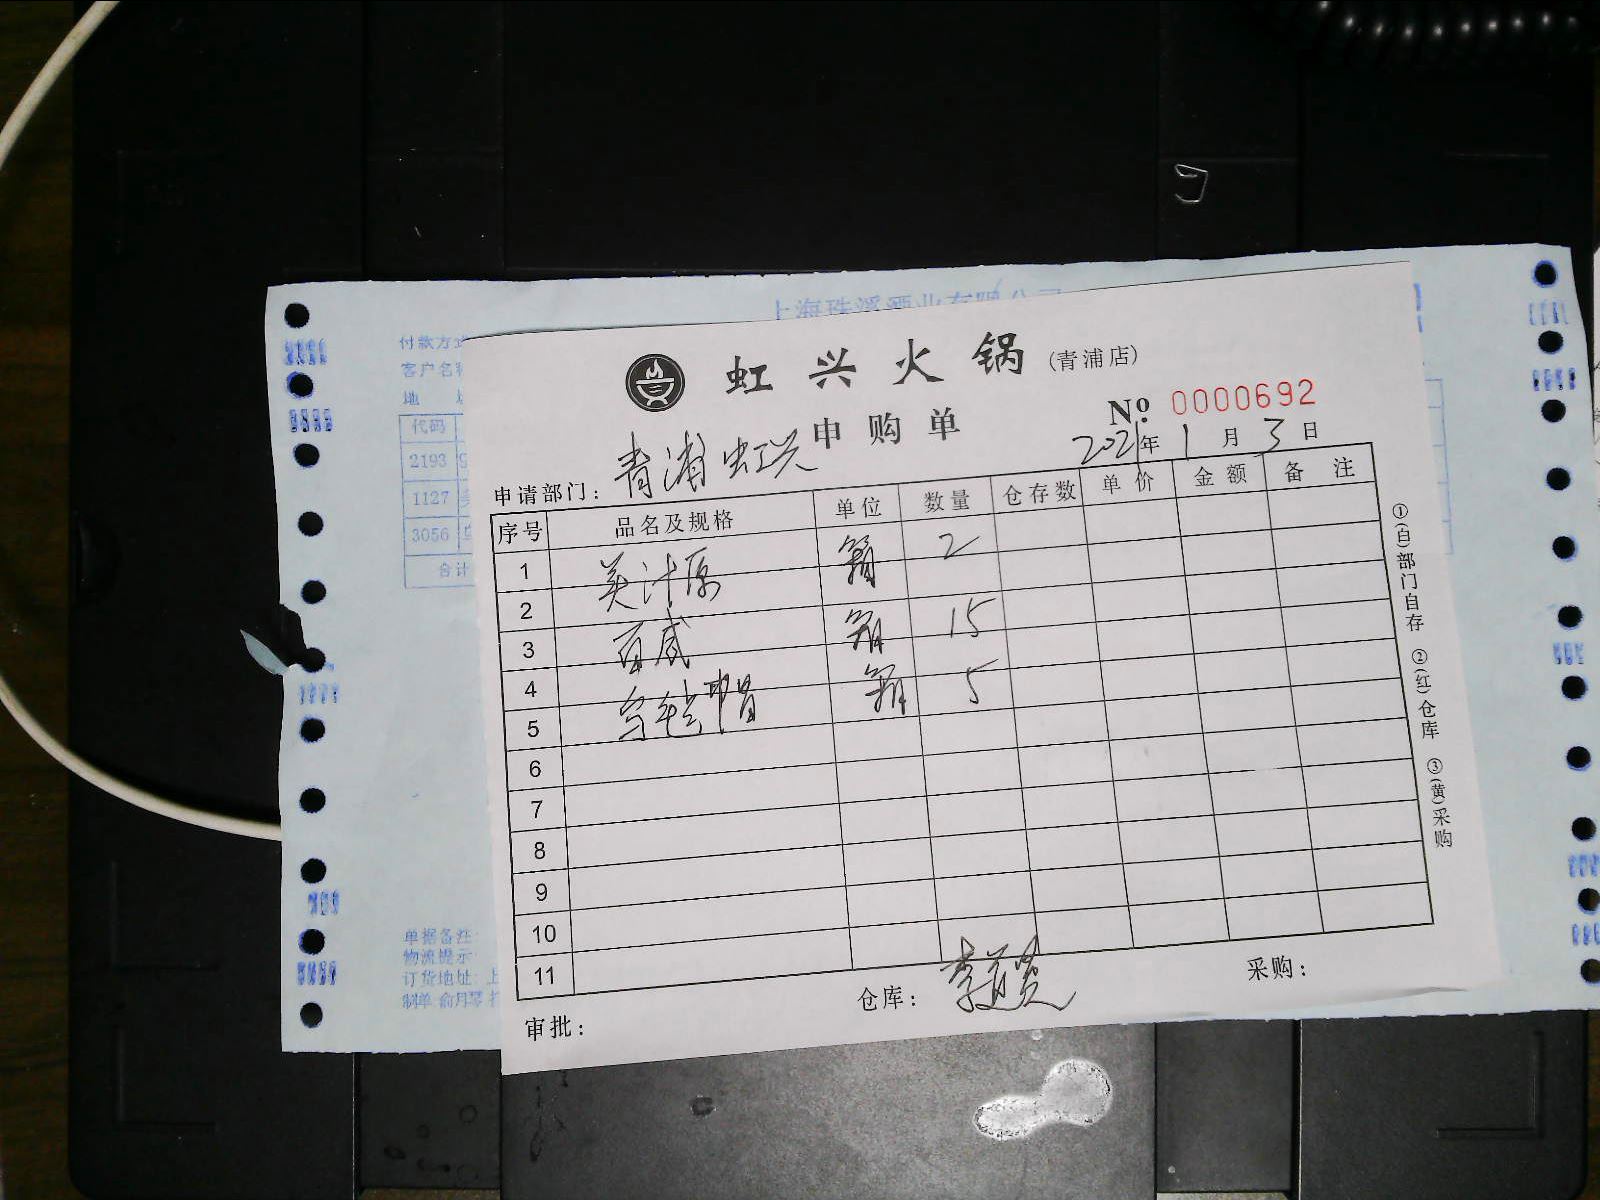 上海珠溪酒业有限公司
付款方式
客户名称
地
代码
2193
1127
3056
合计
虹兴火锅(青浦店)
申购单
№ 0000692
申请部门：青浦虹兴
2021年1月3日
序号 品名及规格 单位 数量 仓存数 单价 金额 备注
1 美汁源 箱 2
2
3 百威 箱 15
4
5 乌毡帽 箱 5
6
7
8
9
10
11
审批：
仓库：李
采购：
①(白)部门自存 ②(红)仓库 ③(黄)采购
单据备注：
物流提示
订货地址：上
制单 俞月琴 打